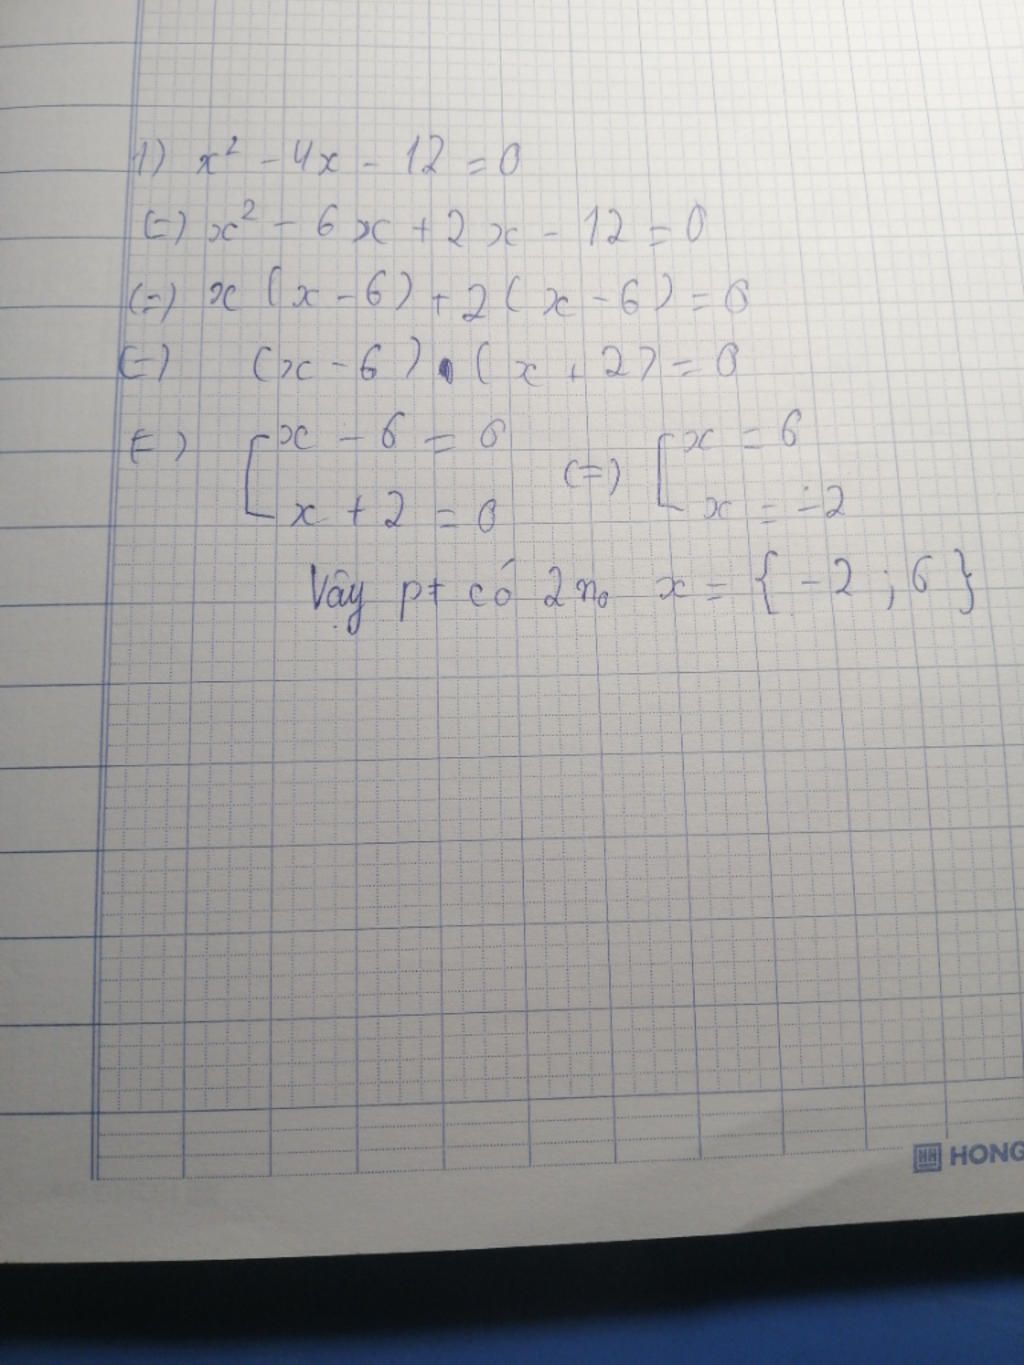 1) x² - 4x - 12 = 0
(=) x² - 6x + 2x - 12 = 0
(=) x (x - 6) + 2 (x - 6) = 0
(=) (x - 6) . (x + 2) = 0
(=) [ x - 6 = 0 (=) [ x = 6
x + 2 = 0 x = -2
Vậy pt có 2 n₀ x = { -2 ; 6 }
HONG